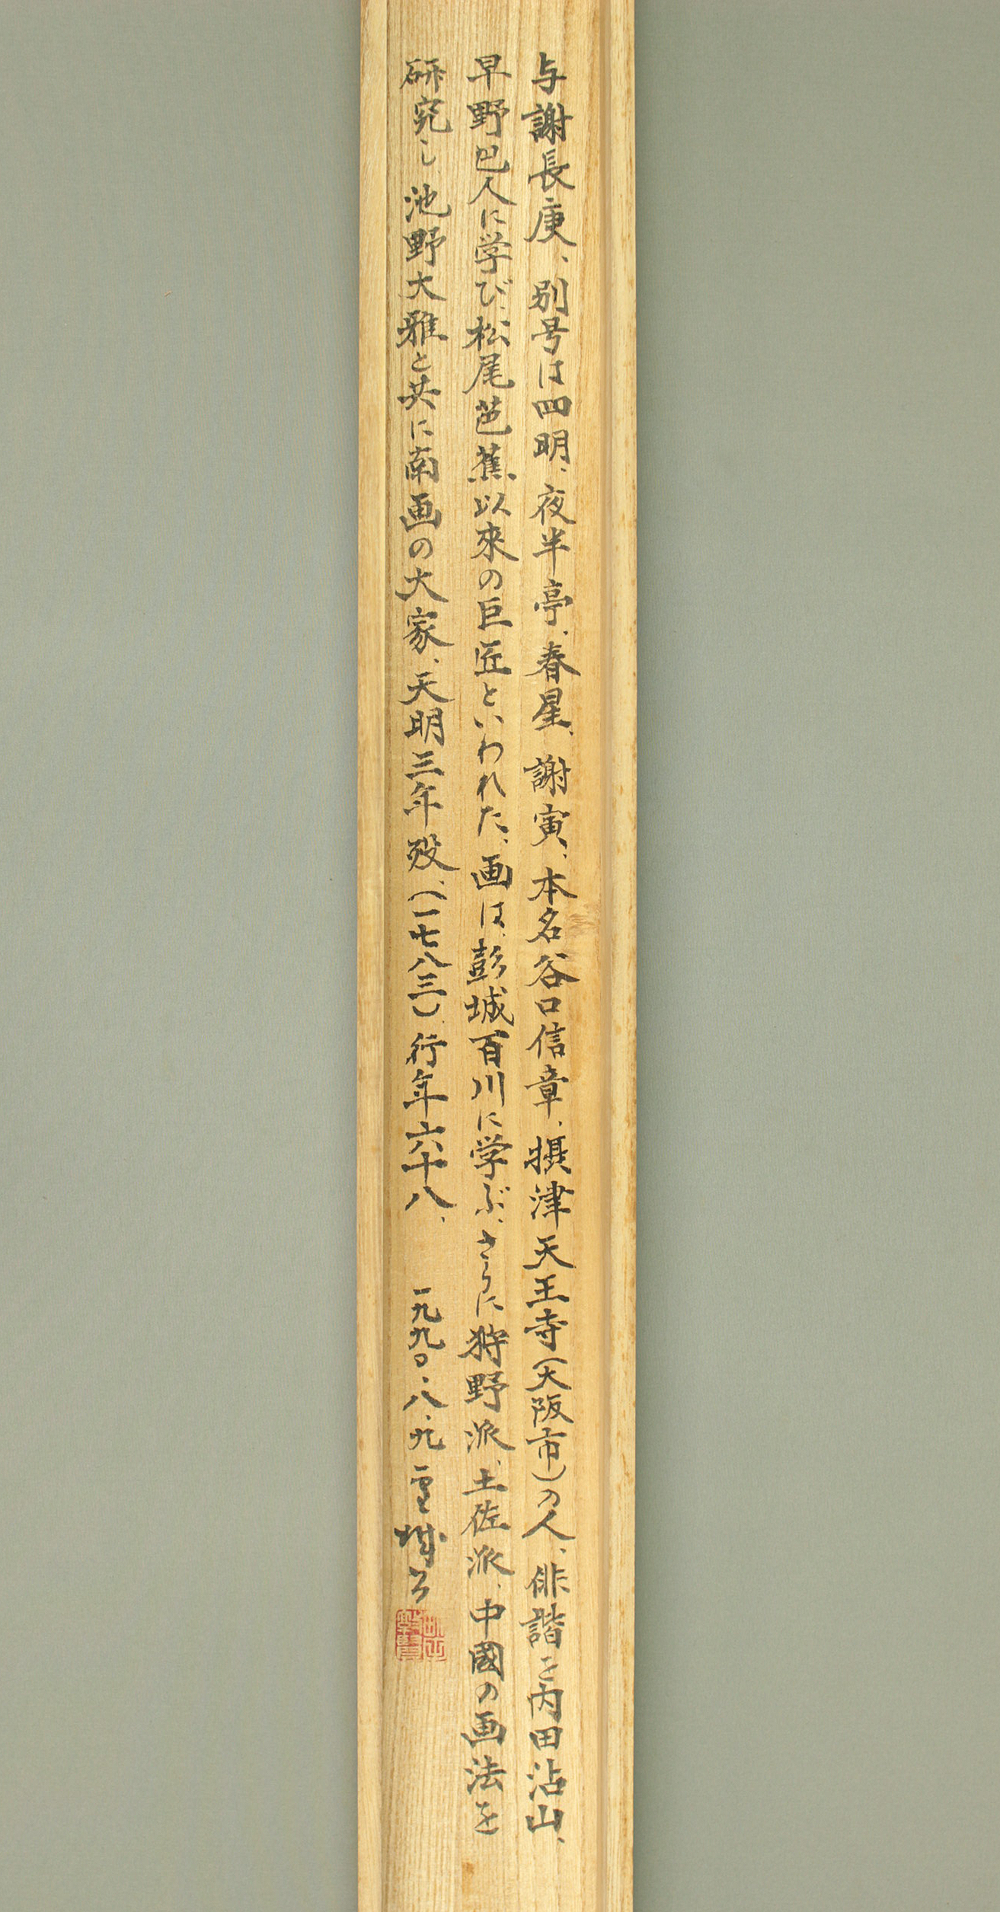 与謝長庚、別号は四明、夜半亭、春星、謝寅、本名谷口信章、摂津天王寺(大阪市)の人、俳諧を内田沾山、
早野巴人に学び、松尾芭蕉以来の巨匠といわれた、画は、彭城百川に学ぶ、さらに狩野派、土佐派、中國の画法を
研究し、池野大雅と共に南画の大家、天明三年歿、(一七八三)、行年六十八、 一九九〇、八、九